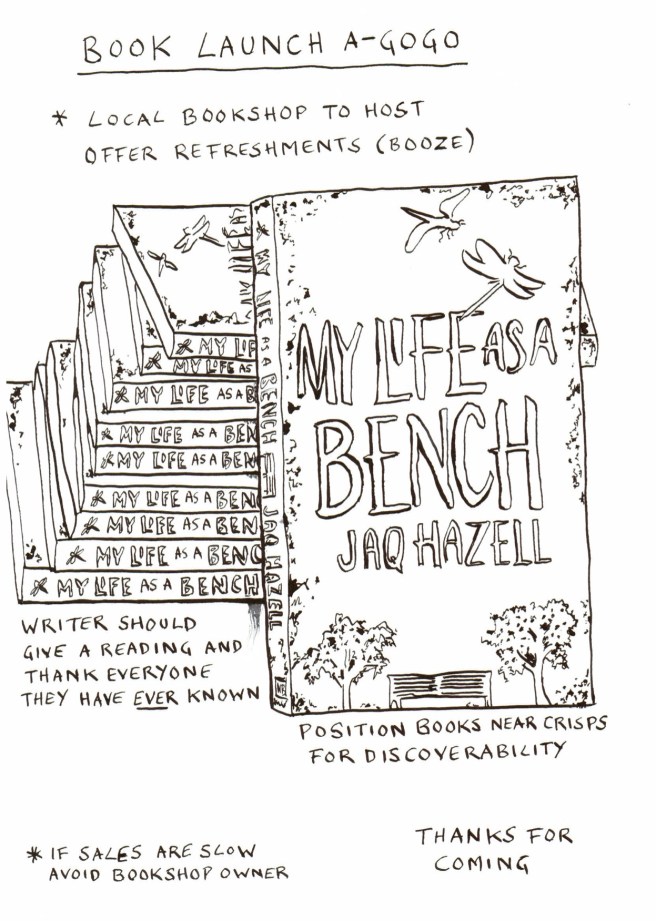 BOOK LAUNCH A-GOGO
* LOCAL BOOKSHOP TO HOST
OFFER REFRESHMENTS (BOOZE)
MY LIFE AS A
BENCH
JAQ HAZELL
MY LIFE AS A BENCH JAQ HAZELL
MY LIF
MY LIFE AS
MY LIFE AS A B
MY LIFE AS A BEN
MY LIFE AS A BEN
MY LIFE AS A BEN
MY LIFE AS A BEN
MY LIFE AS A BENC
MY LIFE AS A BENCH
WRITER SHOULD
GIVE A READING AND
THANK EVERYONE
THEY HAVE EVER KNOWN
POSITION BOOKS NEAR CRISPS
FOR DISCOVERABILITY
* IF SALES ARE SLOW
AVOID BOOKSHOP OWNER
THANKS FOR
COMING